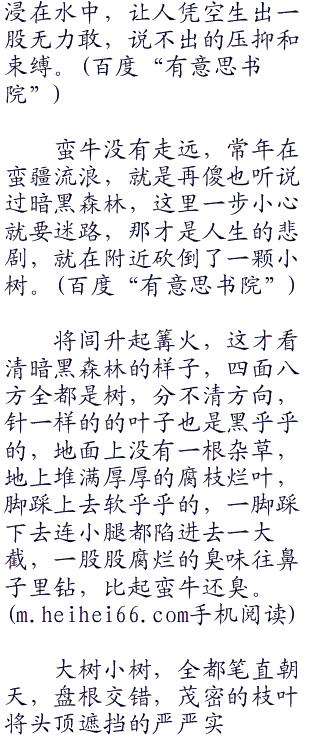 浸在水中，让人凭空生出一
股无力敢，说不出的压抑和
束缚。(百度“有意思书
院”)
蛮牛没有走远，常年在
蛮疆流浪，就是再傻也听说
过暗黑森林，这里一步小心
就要迷路，那才是人生的悲
剧，就在附近砍倒了一颗小
树。(百度“有意思书院”)
将闾升起篝火，这才看
清暗黑森林的样子，四面八
方全都是树，分不清方向，
针一样的的叶子也是黑乎乎
的，地面上没有一根杂草，
地上堆满厚厚的腐枝烂叶，
脚踩上去软乎乎的，一脚踩
下去连小腿都陷进去一大
截，一股股腐烂的臭味往鼻
子里钻，比起蛮牛还臭。
(m.heihei66.com手机阅读)
大树小树，全都笔直朝
天，盘根交错，茂密的枝叶
将头顶遮挡的严严实